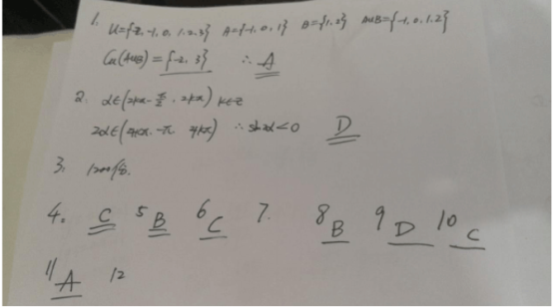 1. U={-2,-1,0,1,2,3} A={-1,0,1} B={1,2} A∪B={-1,0,1,2}
Cu(A∪B)={-2,3} ∴ A
2. α∈(2kπ-π/2, 2kπ) k∈Z
2α∈(4kπ-π, 4kπ) ∴ sin2α<0 D
3.
4. C 5 B 6 C 7. 8 B 9 D 10 C
11 A 12